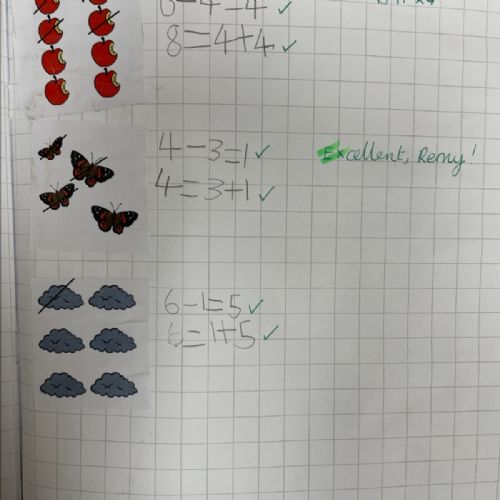 8-4=4 ✓
8=4+4 ✓
4-3=1 ✓
Excellent, Remy!
4=3+1 ✓
6-1=5 ✓
6=1+5 ✓